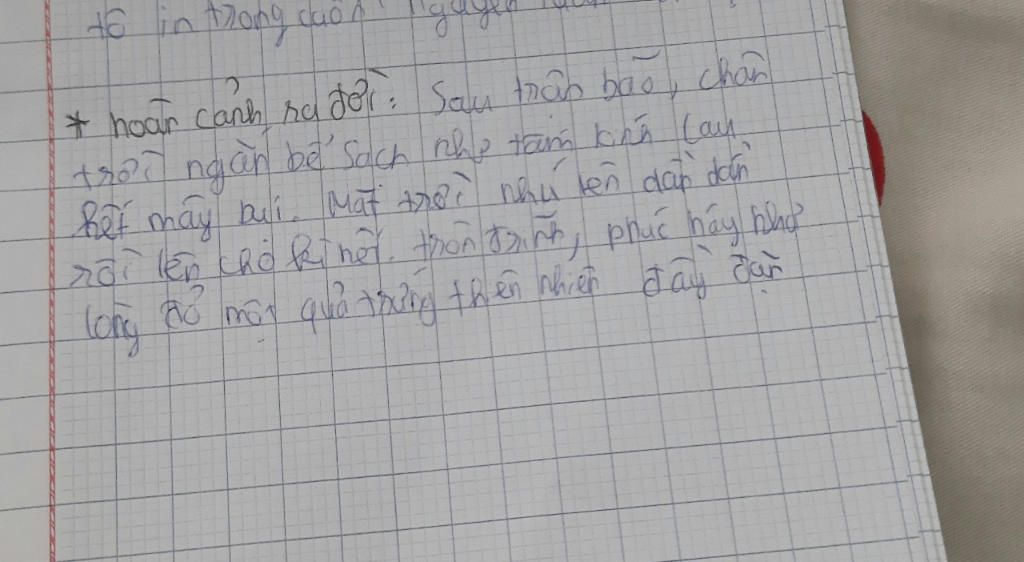 tô in trong cuốn
* hoàn cảnh ra đời: Sau trận bão, chân
trời ngàn bể sạch như tấm kính lau
hết mây bụi. Mặt trời nhú lên dần dần
rồi lên cho kì hết. tròn trĩnh, phúc hậy như
lòng đỏ một quả trứng thiên nhiên đầy đặn